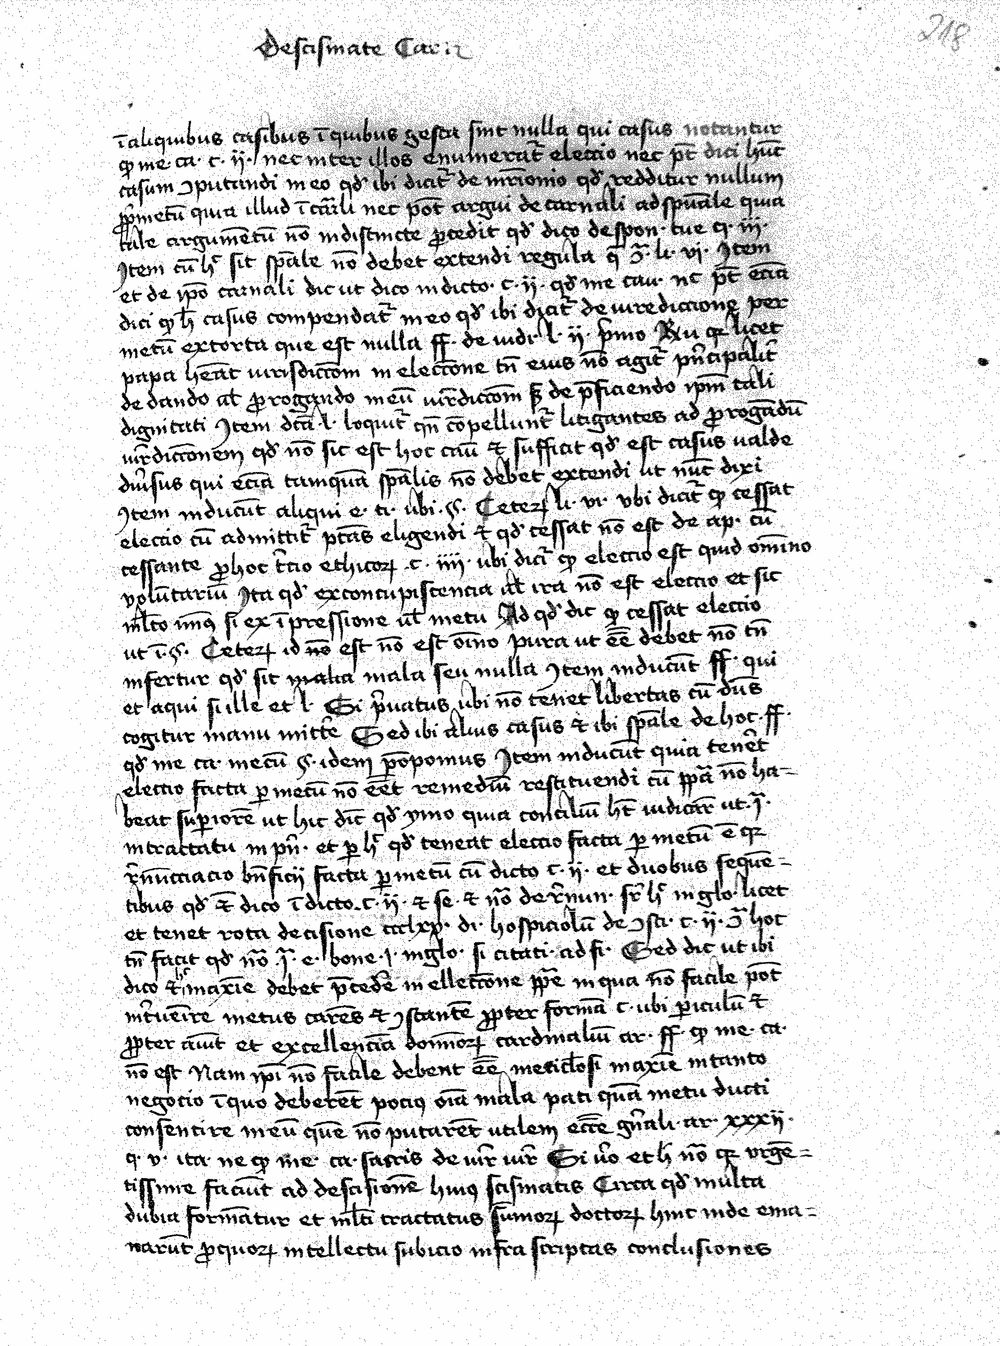 Descismate Car
218
ī aliquibus casibus ī quibus gesta sint nulla qui casus notantur
ꝙ me. ca. c. ij. nec inter illos enumerat̄ eleccio nec pt̄ dici hūc
casum ꝯputandi in eo qd̓ ibi dicit̄ de mr̄ionio qd̓ redditur nullum
ꝑ metū quia illud ī cār̄li nec pot̄ argui de carnali ad spūale quia
tale argumētū nō indistincte ꝓcedit qd̓ dico de spon. tue q. iij.
Item cū hͦ sit spāle nō debet extendi regula li. vi. Item
et de ip̄o carnali dic ut dico in dicto. c. ij. qd̓ me cau. nc pt̄ eciā
dici ꝙ h̄ casus compendat̄ in eo qd̓ ibi dicit̄ de iurediccione per
metū extorta que est nulla ff. de iudi. l. ij. p̄mo licet
papa hēat iurisdiccōm in eleccōne tn̄ eius nō agit̄ pn̄cipalit̄
de dando at̄ ꝓrogando in eū iur̄diccōm ꝫ de p̄ficiendo ip̄m tali
dignitati Item dc̄ā l. loquit̄ qn̄ cōpellunt̄ litigantes ad ꝓrogādū
iur̄diccōnem qd̓ nō sic est hoc cāū & sufficit qd̓ est casus ualde
diūsus qui eciā tamquā spāls nō debet extendi ut nūc dixi
Item inducūt aliqui e. ti. ubi. §. Ceteꝝ li. vi. vbi dicit̄ ꝙ cessat
eleccio cū admittit̄ ptās eligendi & qd̓ cessat nō est de ap. cū
cessante ꝓ hoc t̄cio ethicoꝝ. c. iiij. ubi dicit̄ ꝙ eleccio est quid omīno
voluntariū Ita qd̓ ex concupiscencia ul̄ ira nō est eleccio et sic
ml̄to minꝰ si ex īpressione ul̄ metu Ad qd̓ dic ꝙ cessat eleccio
ut ī. §. Ceteꝝ id nō est nō est oīno pura ut ēē debet nō tn̄
infertur qd̓ sit mala seu nulla Item inducūt ff. qui
et aqui si ille et l. Si p̄uatus ubi nō tenet libertas cū dn̄s
cogitur manu mitte̅ Sed ibi alius casus & ibi spāle de hoc. ff.
qd̓ me ca. metū §. idem pōponius Item inducūt quia tenēt
eleccio facta ꝑ metū nō ēēt remediū restituendi cū ppā nō ha=
beat supiorē ut hic dīc qd̓ ymo quia conciliū ht̄ iudicar̄ ut. ī.
in tractatu in pn̄. et ꝑ hͦ qd̓ teneat eleccio facta ꝑ metū ē
r̄nūcciacio bn̄ficij facta ꝑ metū cū dicto c. ij. et duobus sequē=
tibus qd̓ & dico ī dicto. c. ij. & se. & nō de r̄nun. sr̄ hͦ in glo. licet
et tenet rota decisione ccclxx. di. hospiciolū de ꝯsti. c. ij. hoc
tn̄ facit qd̓ nō ī. e. bone. i. in glo. si citati. ad fi. Sed dic ut ibi
dico & hͦ maxīe debet p̄cedēr in elleccōne ppē in qua nō facile pōt
in̄tuenīre metus carēs & ꝯstantē ꝓpter formā c. ubi ꝑiculū &
ꝓpter et excellenciā domioꝝ cardinaliū ar. ff. ꝙ me. ca.
nō est Nam ip̄i nō facile debent ēē meticl̄osi maxīe in tanto
negocio ī quo deberēt pociꝰ oīa mala pati quā metu ducti
consentire in eū quē nō putarēt utilem ecc̄e gn̄ali ar. xxxij.
q. v. ita ne ꝙ me. ca. sacris de iur̄ iur̄ Si ūo et h̄ nō urgē=
tissime faciūt ad descisionē huiꝰ scismatis Circa qd̓ multa
dubia formātur et ml̄ti tractatus sumoꝝ doctoꝝ hinc inde ema=
narūt ꝓ quoꝝ intellectu subicio infra scriptas conclusiones